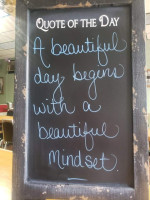 QUOTE OF THE DAY
A beautiful
day begins
with a
beautiful
Mindset.